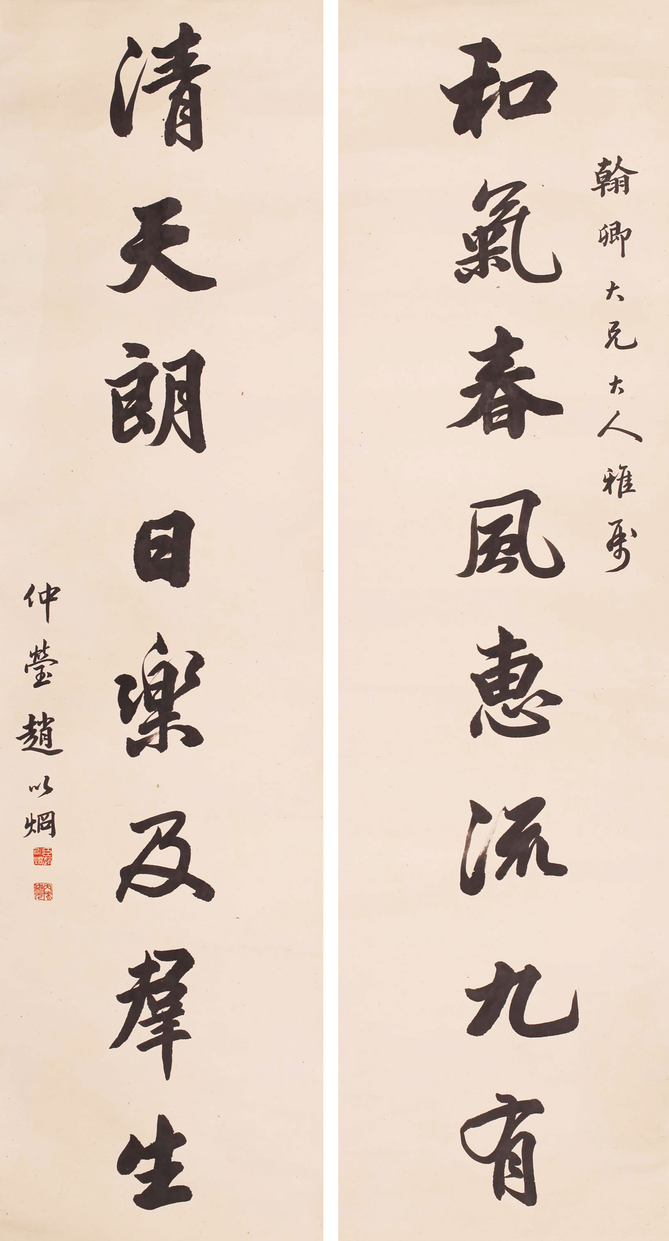 翰卿大兄大人雅属
和氣春風惠流九有
清天朗日樂及羣生
仲瑩趙以烱